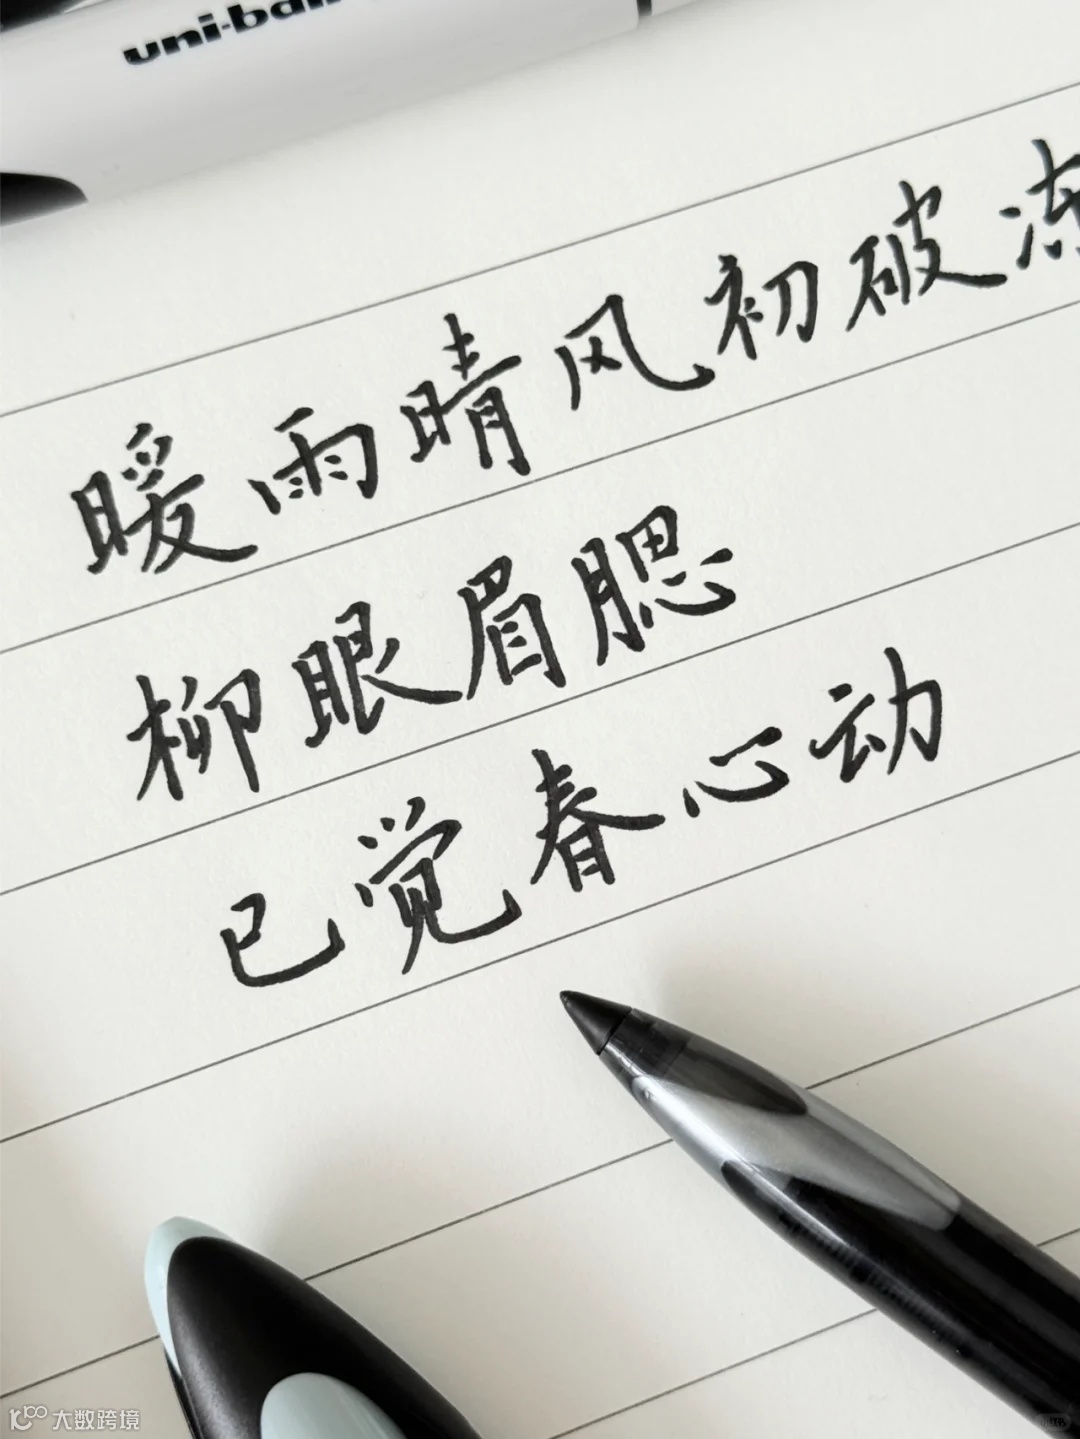 uni-ball
暖雨晴风初破冻
柳眼眉腮
已觉春心动
大数跨境